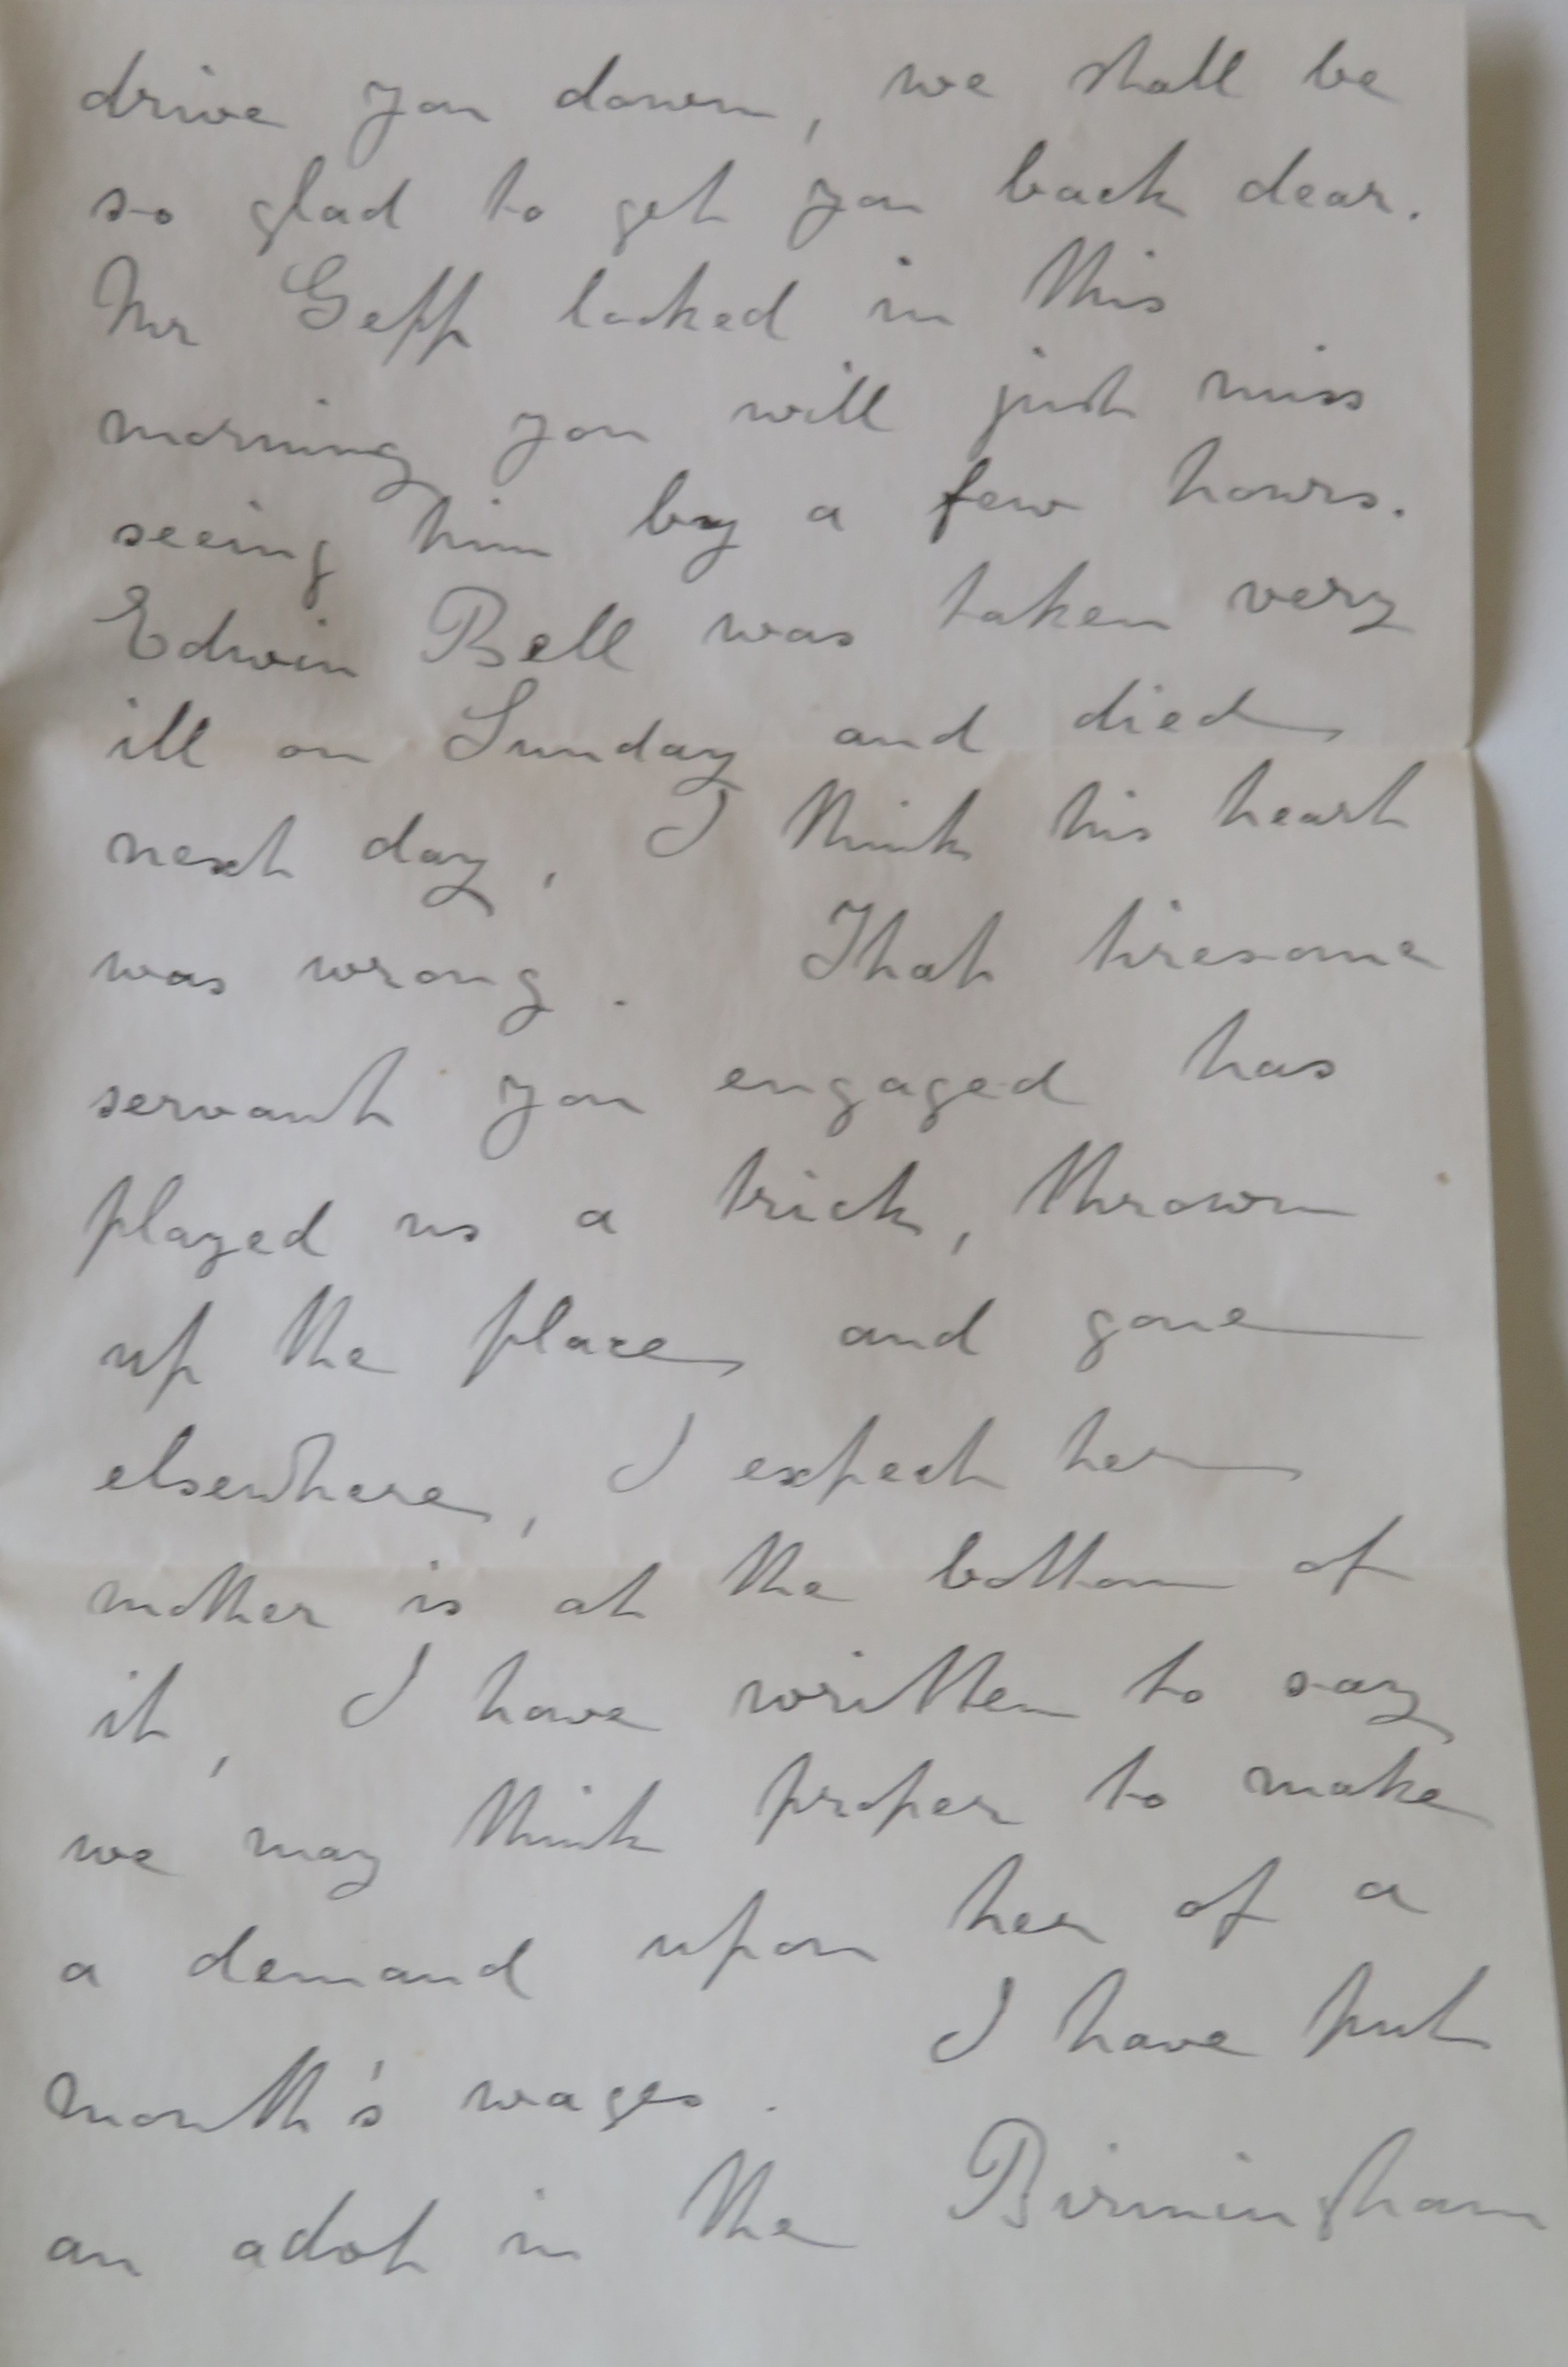 drive you down, we shall be
so glad to get you back dear.
Mr Gepp looked in this
morning you will just miss
seeing him by a few hours.
Edwin Bell was taken very
ill on Sunday and died
next day, I think his heart
was wrong. That tiresome
servant you engaged has
played us a trick, thrown
up the place and gone
elsewhere, I expect her
mother is at the bottom of
it, I have written to say
we may think proper to make
a demand upon her of a
month's wages. I have put
an advt in the Birmingham